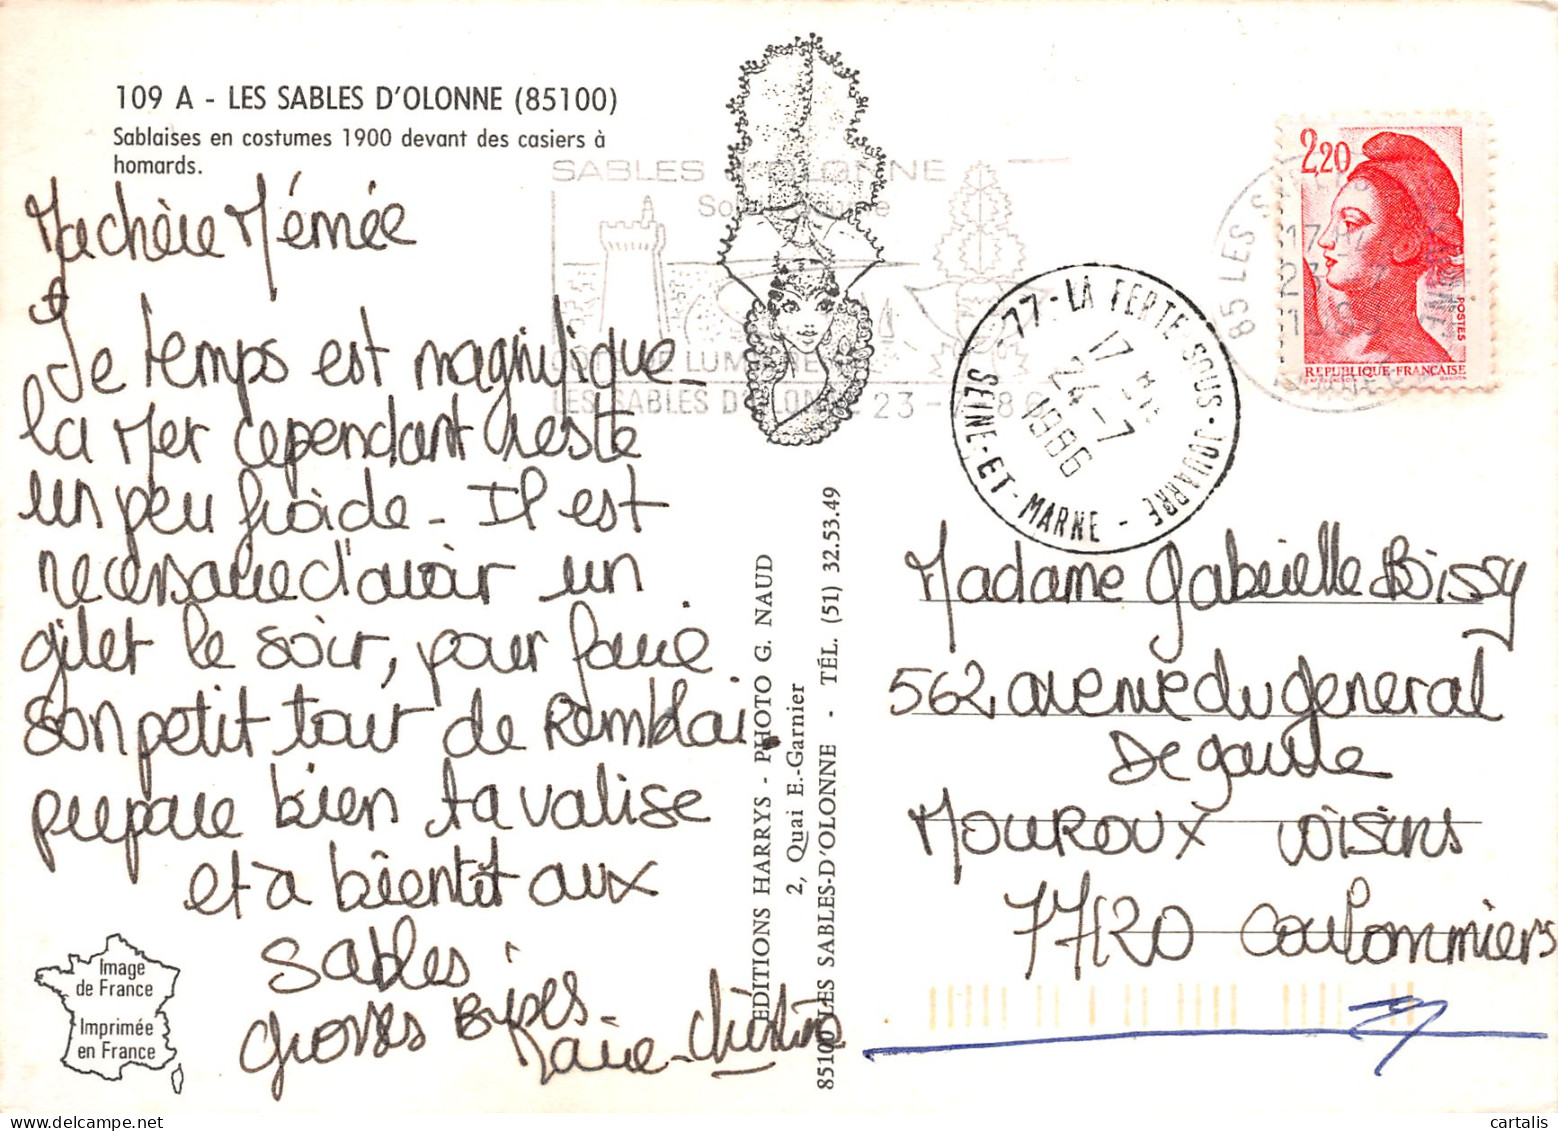 109 A - LES SABLES D'OLONNE (85100)
Sablaises en costumes 1900 devant des casiers à
homards.
Ma chère Mémée
Le temps est magnifique_
la Mer cependant reste
un peu froide_ Il est
necessaire d'avoir un
gilet le soir, pour faire
son petit tour de Remblai.
prepare bien ta valise
et à bientôt aux
Sables.
Grosses Bises_
Marie-Christine
Image
de France
Imprimée
en France
EDITIONS HARRYS - PHOTO G. NAUD
2, Quai E.-Garnier
85100 LES SABLES-D'OLONNE - TÉL. (51) 32.53.49
SABLES D'OLONNE
CÔTE DE LUMIERE
LES SABLES D'OLONNE 23
77-LA FERTE-SOUS-JOUARRE
17
24-7
1986
SEINE-ET-MARNE
2,20
POSTES
REPUBLIQUE-FRANCAISE
85 LES SABLES
Madame Gabrielle Boissy
562 avenue du General
De gaulle
MOUROUX voisins
77120 Coulommiers